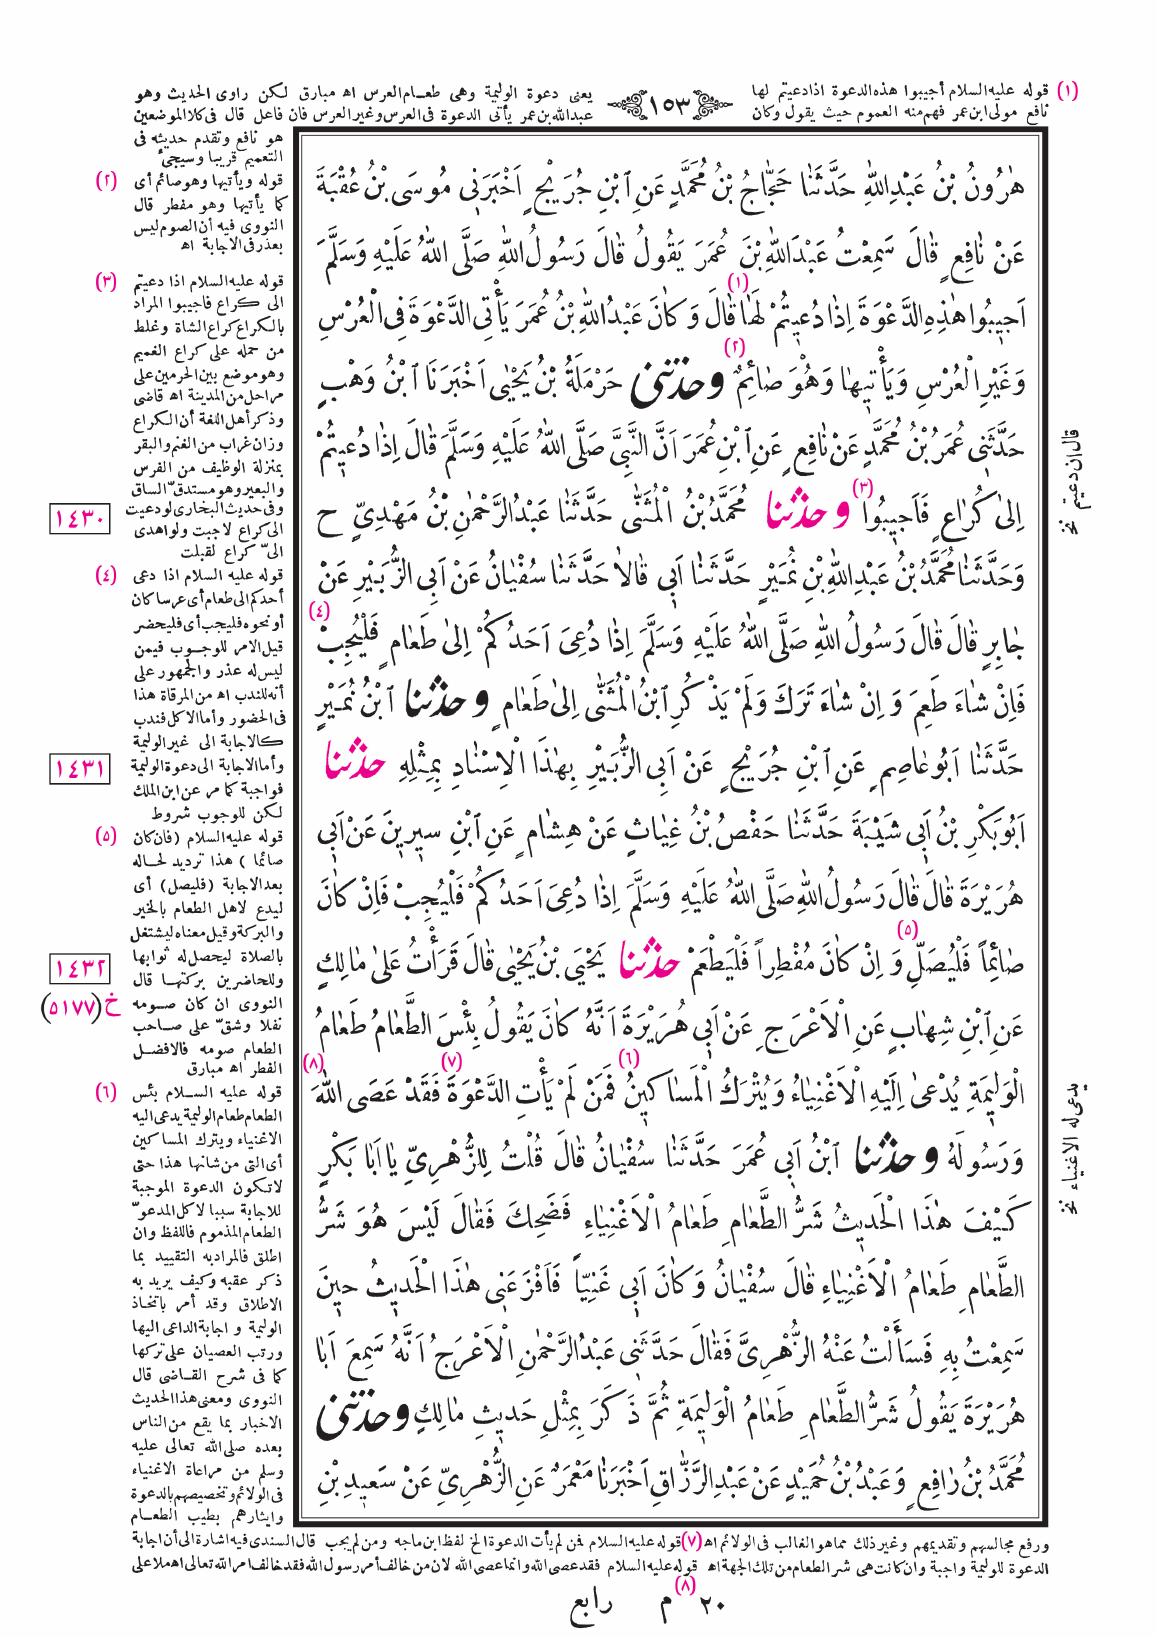 ١٥٣
(١) قوله عليه السلام أجيبوا هذه الدعوة اذا دعيتم لها
نافع مولى ابن عمر فهم منه العموم حيث يقول وكان
يعنى دعوة الوليمة وهى طعام العرس اه مبارق لكن راوى الحديث وهو
عبدالله بن عمر يأتى الدعوة فى العرس وغير العرس فان فاعل قال فى كلا الموضعين
هو نافع وتقدم حديثه فى
التعميم قريبا وسيجئ
هٰرُونُ بْنُ عَبْدِاللّٰهِ حَدَّثَنَا حَجَّاجُ بْنُ مُحَمَّدٍ عَنِ ابْنِ جُرَيْجٍ اَخْبَرَنِى مُوسَى بْنُ عُقْبَةَ
عَنْ نَافِعٍ قَالَ سَمِعْتُ عَبْدَاللّٰهِ بْنَ عُمَرَ يَقُولُ قَالَ رَسُولُ اللّٰهِ صَلَّى اللّٰهُ عَلَيْهِ وَسَلَّمَ
اَجِيبُوا هٰذِهِ الدَّعْوَةَ اِذَا دُعِيتُمْ لَهَا (١) قَالَ وَكَانَ عَبْدُاللّٰهِ بْنُ عُمَرَ يَأْتِى الدَّعْوَةَ فِى الْعُرْسِ
وَغَيْرِ الْعُرْسِ وَيَأْتِيهَا وَهُوَ صَائِمٌ (٢) وحَدَّثَنِى حَرْمَلَةُ بْنُ يَحْيٰى اَخْبَرَنَا ابْنُ وَهْبٍ
حَدَّثَنِى عُمَرُ بْنُ مُحَمَّدٍ عَنْ نَافِعٍ عَنِ ابْنِ عُمَرَ اَنَّ النَّبِىَّ صَلَّى اللّٰهُ عَلَيْهِ وَسَلَّمَ قَالَ اِذَا دُعِيتُمْ
اِلٰى كُرَاعٍ فَاَجِيبُوا (٣) وحدثنا مُحَمَّدُ بْنُ الْمُثَنّٰى حَدَّثَنَا عَبْدُالرَّحْمٰنِ بْنُ مَهْدِىٍّ ح
وَحَدَّثَنَا مُحَمَّدُ بْنُ عَبْدِاللّٰهِ بْنِ نُمَيْرٍ حَدَّثَنَا اَبِى قَالَا حَدَّثَنَا سُفْيَانُ عَنْ اَبِى الزُّبَيْرِ عَنْ
جَابِرٍ قَالَ قَالَ رَسُولُ اللّٰهِ صَلَّى اللّٰهُ عَلَيْهِ وَسَلَّمَ اِذَا دُعِىَ اَحَدُكُمْ اِلٰى طَعَامٍ فَلْيُجِبْ (٤)
فَاِنْ شَاءَ طَعِمَ وَاِنْ شَاءَ تَرَكَ وَلَمْ يَذْكُرِ ابْنُ الْمُثَنّٰى اِلٰى طَعَامٍ وحدثنا ابْنُ نُمَيْرٍ
حَدَّثَنَا اَبُوعَاصِمٍ عَنِ ابْنِ جُرَيْجٍ عَنْ اَبِى الزُّبَيْرِ بِهٰذَا الْاِسْنَادِ بِمِثْلِهِ حدثنا
اَبُوبَكْرِ بْنُ اَبِى شَيْبَةَ حَدَّثَنَا حَفْصُ بْنُ غِيَاثٍ عَنْ هِشَامٍ عَنِ ابْنِ سِيرِينَ عَنْ اَبِى
هُرَيْرَةَ قَالَ قَالَ رَسُولُ اللّٰهِ صَلَّى اللّٰهُ عَلَيْهِ وَسَلَّمَ اِذَا دُعِىَ اَحَدُكُمْ فَلْيُجِبْ فَاِنْ كَانَ
صَائِماً فَلْيُصَلِّ (٥) وَاِنْ كَانَ مُفْطِراً فَلْيَطْعَمْ حدثنا يَحْيَى بْنُ يَحْيٰى قَالَ قَرَأْتُ عَلٰى مَالِكٍ
عَنِ ابْنِ شِهَابٍ عَنِ الْاَعْرَجِ عَنْ اَبِى هُرَيْرَةَ اَنَّهُ كَانَ يَقُولُ بِئْسَ الطَّعَامُ طَعَامُ
الْوَلِيمَةِ يُدْعٰى اِلَيْهِ الْاَغْنِيَاءُ وَيُتْرَكُ الْمَسَاكِينُ (٦) فَمَنْ لَمْ يَأْتِ الدَّعْوَةَ (٧) فَقَدْ عَصَى اللّٰهَ (٨)
وَرَسُولَهُ وحدثنا ابْنُ اَبِى عُمَرَ حَدَّثَنَا سُفْيَانُ قَالَ قُلْتُ لِلزُّهْرِىِّ يَا اَبَا بَكْرٍ
كَيْفَ هٰذَا الْحَدِيثُ شَرُّ الطَّعَامِ طَعَامُ الْاَغْنِيَاءِ فَضَحِكَ فَقَالَ لَيْسَ هُوَ شَرُّ
الطَّعَامِ طَعَامُ الْاَغْنِيَاءِ قَالَ سُفْيَانُ وَكَانَ اَبِى غَنِيّاً فَاَفْزَعَنِى هٰذَا الْحَدِيثُ حِينَ
سَمِعْتُ بِهِ فَسَأَلْتُ عَنْهُ الزُّهْرِىَّ فَقَالَ حَدَّثَنِى عَبْدُالرَّحْمٰنِ الْاَعْرَجُ اَنَّهُ سَمِعَ اَبَا
هُرَيْرَةَ يَقُولُ شَرُّ الطَّعَامِ طَعَامُ الْوَلِيمَةِ ثُمَّ ذَكَرَ بِمِثْلِ حَدِيثِ مَالِكٍ وحَدَّثَنِى
مُحَمَّدُ بْنُ رَافِعٍ وَعَبْدُ بْنُ حُمَيْدٍ عَنْ عَبْدِالرَّزَّاقِ اَخْبَرَنَا مَعْمَرٌ عَنِ الزُّهْرِىِّ عَنْ سَعِيدِ بْنِ
قال ان دعيتم نخ
يدعى له الاغنياء نخ
١٤٣٠
١٤٣١
١٤٣٢
خ (٥١٧٧)
(٢) قوله ويأتيها وهو صائم أى
كما يأتيها وهو مفطر قال
النووى فيه أن الصوم ليس
بعذر فى الاجابة اه
(٣) قوله عليه السلام اذا دعيتم
الى كراع فاجيبوا المراد
بالكراع كراع الشاة وغلط
من حمله على كراع الغميم
وهو موضع بين الحرمين على
مراحل من المدينة اه قاضى
وذكر أهل اللغة أن الكراع
وزان غراب من الغنم والبقر
بمنزلة الوظيف من الفرس
والبعير وهو مستدق الساق
وفى حديث البخارى لو دعيت
الى كراع لاجبت ولو اهدى
الىّ كراع لقبلت
(٤) قوله عليه السلام اذا دعى
أحدكم الى طعام أى عرسا كان
أو نحوه فليجب أى فليحضر
قيل الامر للوجوب فيمن
ليس له عذر والجمهور على
أنه للندب اه من المرقاة هذا
فى الحضور وأما الاكل فندب
كالاجابة الى غير الوليمة
وأما الاجابة الى دعوة الوليمة
فواجبة كما مر عن ابن الملك
لكن للوجوب شروط
(٥) قوله عليه السلام (فان كان
صائما) هذا ترديد لحاله
بعد الاجابة (فليصل) أى
ليدع لاهل الطعام بالخير
والبركة وقيل معناه ليشتغل
بالصلاة ليحصل له ثوابها
وللحاضرين بركتها قال
النووى ان كان صومه
نفلا وشقّ على صاحب
الطعام صومه فالافضل
الفطر اه مبارق
(٦) قوله عليه السلام بئس
الطعام طعام الوليمة يدعى اليه
الاغنياء ويترك المساكين
أى التى من شانها هذا حتى
لا تكون الدعوة الموجبة
للاجابة سببا لاكل المدعوّ
الطعام المذموم فاللفظ وان
اطلق فالمراد به التقييد بما
ذكر عقبه وكيف يريد به
الاطلاق وقد أمر باتخاذ
الوليمة و اجابة الداعى اليها
ورتب العصيان على تركها
كما فى شرح القاضى قال
النووى ومعنى هذا الحديث
الاخبار بما يقع من الناس
بعده صلى الله تعالى عليه
وسلم من مراعاة الاغنياء
فى الولائم وتخصيصهم بالدعوة
وايثارهم بطيب الطعام
ورفع مجالسهم وتقديمهم وغير ذلك مما هو الغالب فى الولائم اه (٧) قوله عليه السلام فمن لم يأت الدعوة الخ لفظ ابن ماجه ومن لم يجب قال السندى فيه اشارة الى أن اجابة
الدعوة للوليمة واجبة وان كانت هى شر الطعام من تلك الجهة اه (٨) قوله عليه السلام فقد عصى الله وانما عصى الله لان من خالف أمر رسول الله فقد خالف امر الله تعالى اه ملا على
٢٠ م رابع